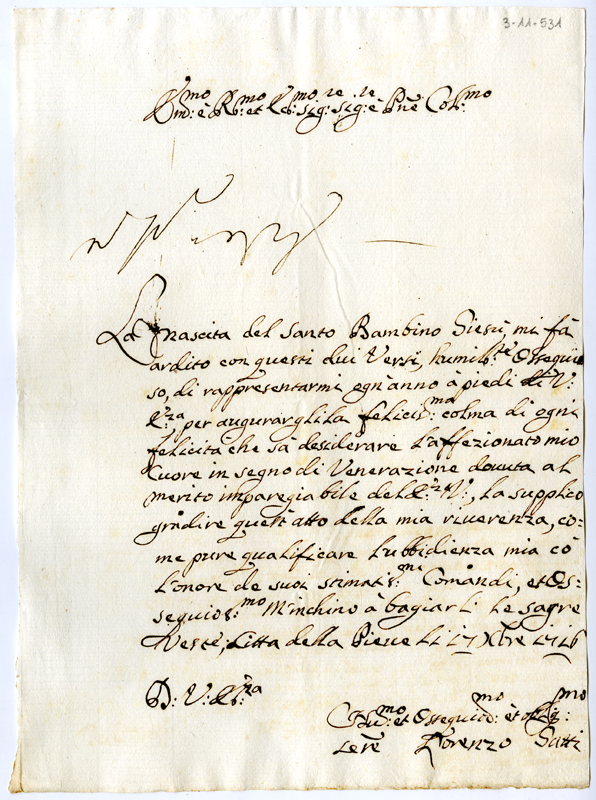 3-11-531
Em:mo è R:mo et Ecc:mo Sig:re Sig:re è Prñe Col:mo
La nascita del Santo Bambino Giesù, mi fà
ardito con questi dui Versi, humil:te Ossequio
so, di rappresentarmi ogn'anno à piedi di V:
E:za per augurargli la felicis:ma colma di ogni
felicità che sà desiderare l'affezionato mio
Cuore in segno di Venerazione douuta al
merito impareggiabile dell'E:za V:, La supplico
gradire quest'atto della mia riuerenza, co-
me pure qualificare l'ubbidienza mia cõ
l'onore de suoi stimatis:mi Comãndi, et Os-
sequios:mo M'inchino à bagiarLi le sagre
Veste; Citta della Pieue Li 17 Xbre 1716
D: V: E:za
Hu:mo et Ossequio:mo et obl:mo
Lorenzo Gatti